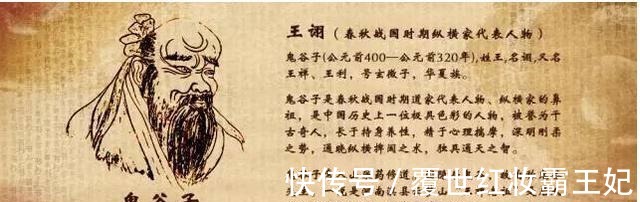 王诩（春秋战国时期纵横家代表人物）
鬼谷子(公元前400—公元前320年),姓王,名诩,又名
王祥、王利，号玄微子，华夏族。
鬼谷子是春秋战国时期道家代表人物、纵横家的鼻
祖，是中国历史上一位极具色彩的人物，被誉为千
古奇人，长于持身养性，精于心理揣摩，深明刚柔
之势，通晓纵横捭阖之术，独具通天之智。
快传号/覆世红妆霸王妃
鬼谷子